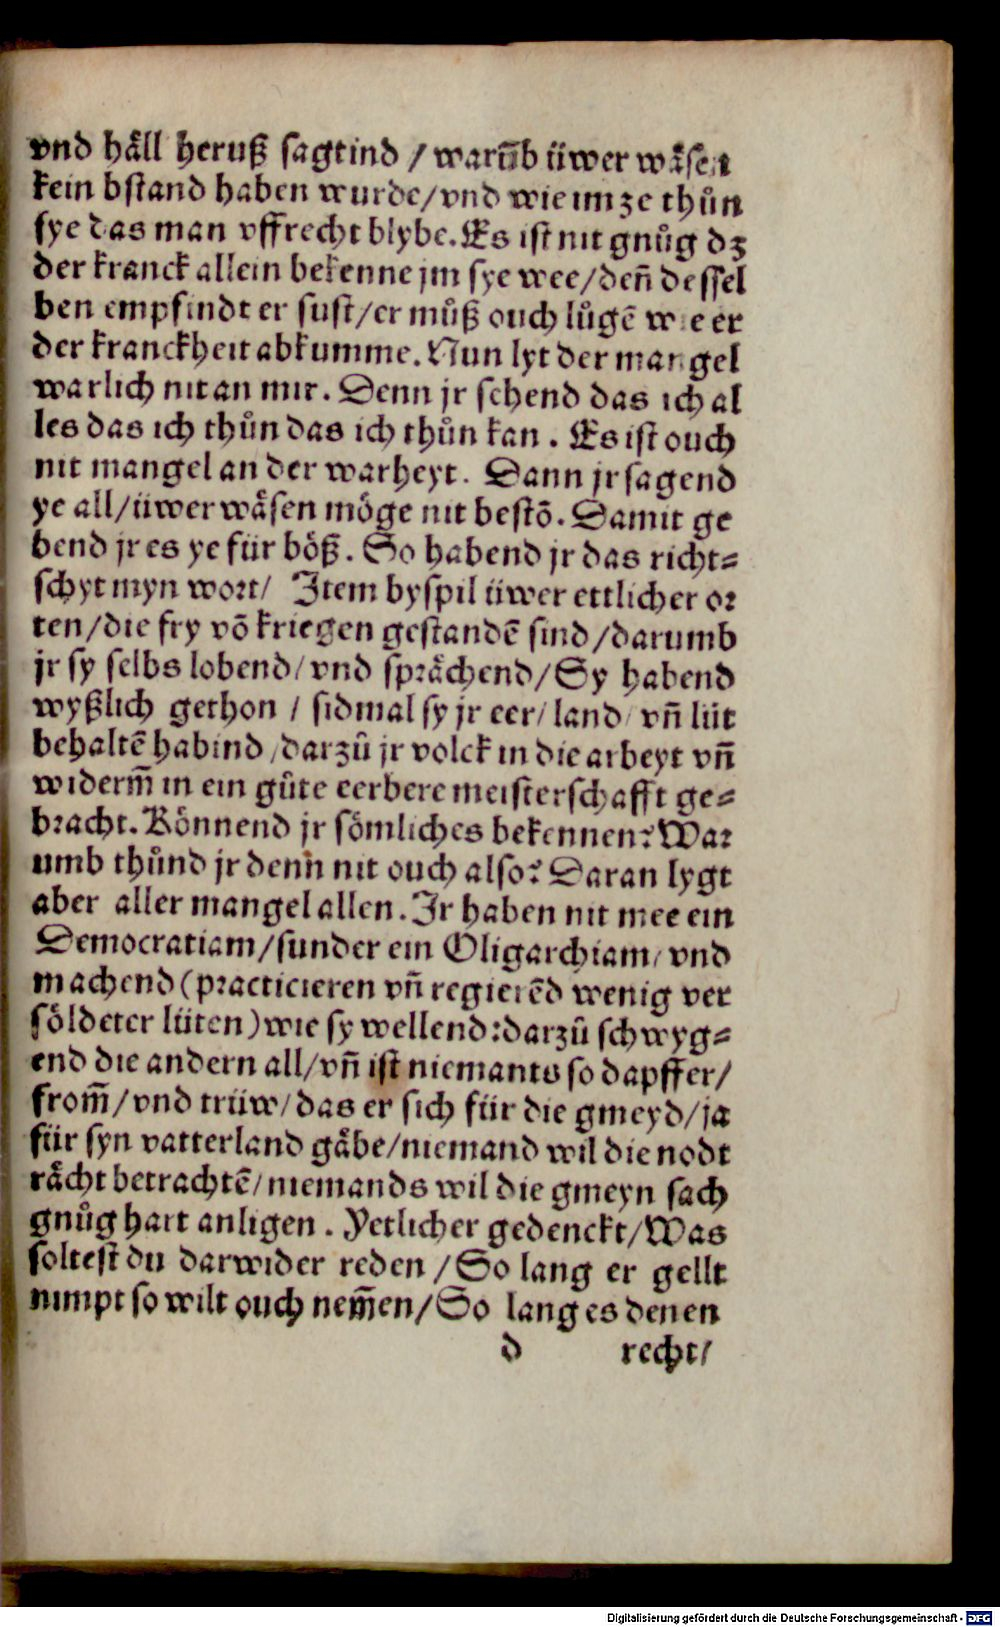 vnd häll heruß sagtind / warūb üwer wäsen
kein bstand haben wurde/vnd wie im ze thůn
sye das man vffrecht blybe. Es ist nit gnůg dz
der kranck allein bekenne jm sye wee/deñ dessel
ben empfindt er sust/er můß ouch lůgē wie er
der kranckheit abkumme. Nun lyt der mangel
warlich nit an mir. Denn jr sehend das ich al
les das ich thůn das ich thůn kan . Es ist ouch
nit mangel an der warheyt. Dann jr sagend
ye all/üwer wäsen möge nit bestō. Damit ge
bend jr es ye für böß. So habend jr das richt=
schyt myn wort/ Item byspil üwer ettlicher or
ten/die fry vō kriegen gestandē sind/darumb
jr sy selbs lobend/vnd sprächend/Sy habend
wyßlich gethon / sidmal sy jr eer/land/vñ lüt
behaltē habind/darzů jr volck in die arbeyt vñ
widerm̃ in ein gůte eerbere meisterschafft ge=
bracht. Könnend jr sömliches bekennen? War
umb thůnd jr denn nit ouch also? Daran lygt
aber aller mangel allen. Ir haben nit mee ein
Democratiam/sunder ein Oligarchiam/vnd
machend (practicieren vñ regierēd wenig ver
söldeter lüten) wie sy wellend: darzů schwyg=
end die andern all/vñ ist niemants so dapffer/
from̃/vnd trüw/das er sich für die gmeyd/ja
für syn vatterland gäbe/niemand wil die nodt
rächt betrachtē/niemands wil die gmeyn sach
gnůg hart anligen . Yetlicher gedenckt/Was
soltest du darwider reden /So lang er gellt
nimpt so wilt ouch nem̃en/So lang es denen
d recht/
Digitalisierung gefördert durch die Deutsche Forschungsgemeinschaft - DFG